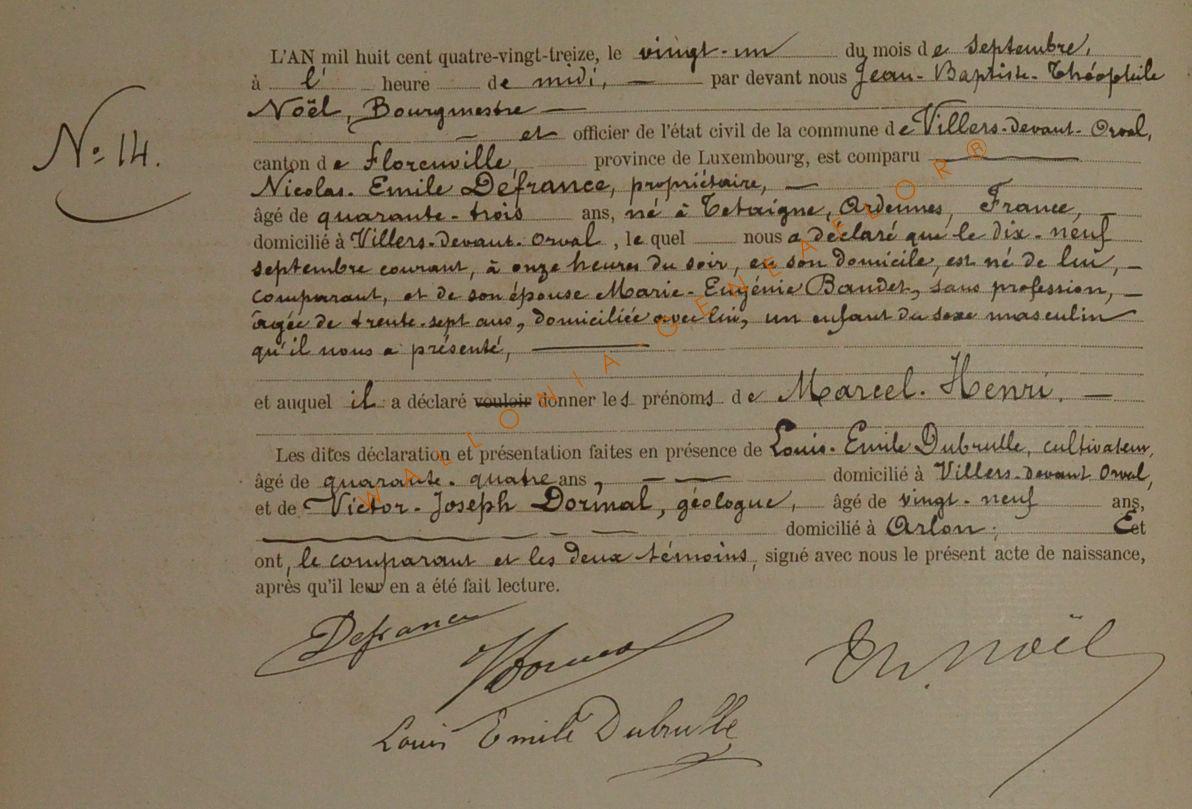 L'AN mil huit cent quatre-vingt-treize, le vingt-un du mois de septembre,
à l' heure de midi, par devant nous Jean-Baptiste-Théophile
Noël, Bourgmestre
et officier de l'état civil de la commune de Villers-devant-Orval,
N° 14.
canton de Florenville, province de Luxembourg, est comparu
Nicolas-Emile Defrance, propriétaire,
âgé de quarante-trois ans, né à Tetaigne, Ardennes, France,
domicilié à Villers-devant-Orval, lequel nous a déclaré que le dix-neuf
septembre courant, à onze heures du soir, en son domicile, est né de lui,
comparant, et de son épouse Marie-Eugénie Baudet, sans profession,
âgée de trente-sept ans, domiciliée avec lui, un enfant du sexe masculin
qu'il nous a présenté,
et auquel il a déclaré vouloir donner les prénoms de Marcel-Henri.
Les dites déclaration et présentation faites en présence de Louis-Emile Dubrulle, cultivateur,
âgé de quarante-quatre ans, domicilié à Villers-devant Orval,
et de Victor-Joseph Dormal, géologue, âgé de vingt-neuf ans,
domicilié à Arlon; Et et
ont, le comparant et les deux témoins, signé avec nous le présent acte de naissance,
après qu'il leur en a été fait lecture.
Defrance
VDormal
Th. Noël
Louis Emile Dubrulle
WALLONIA-GENEAFLOR®